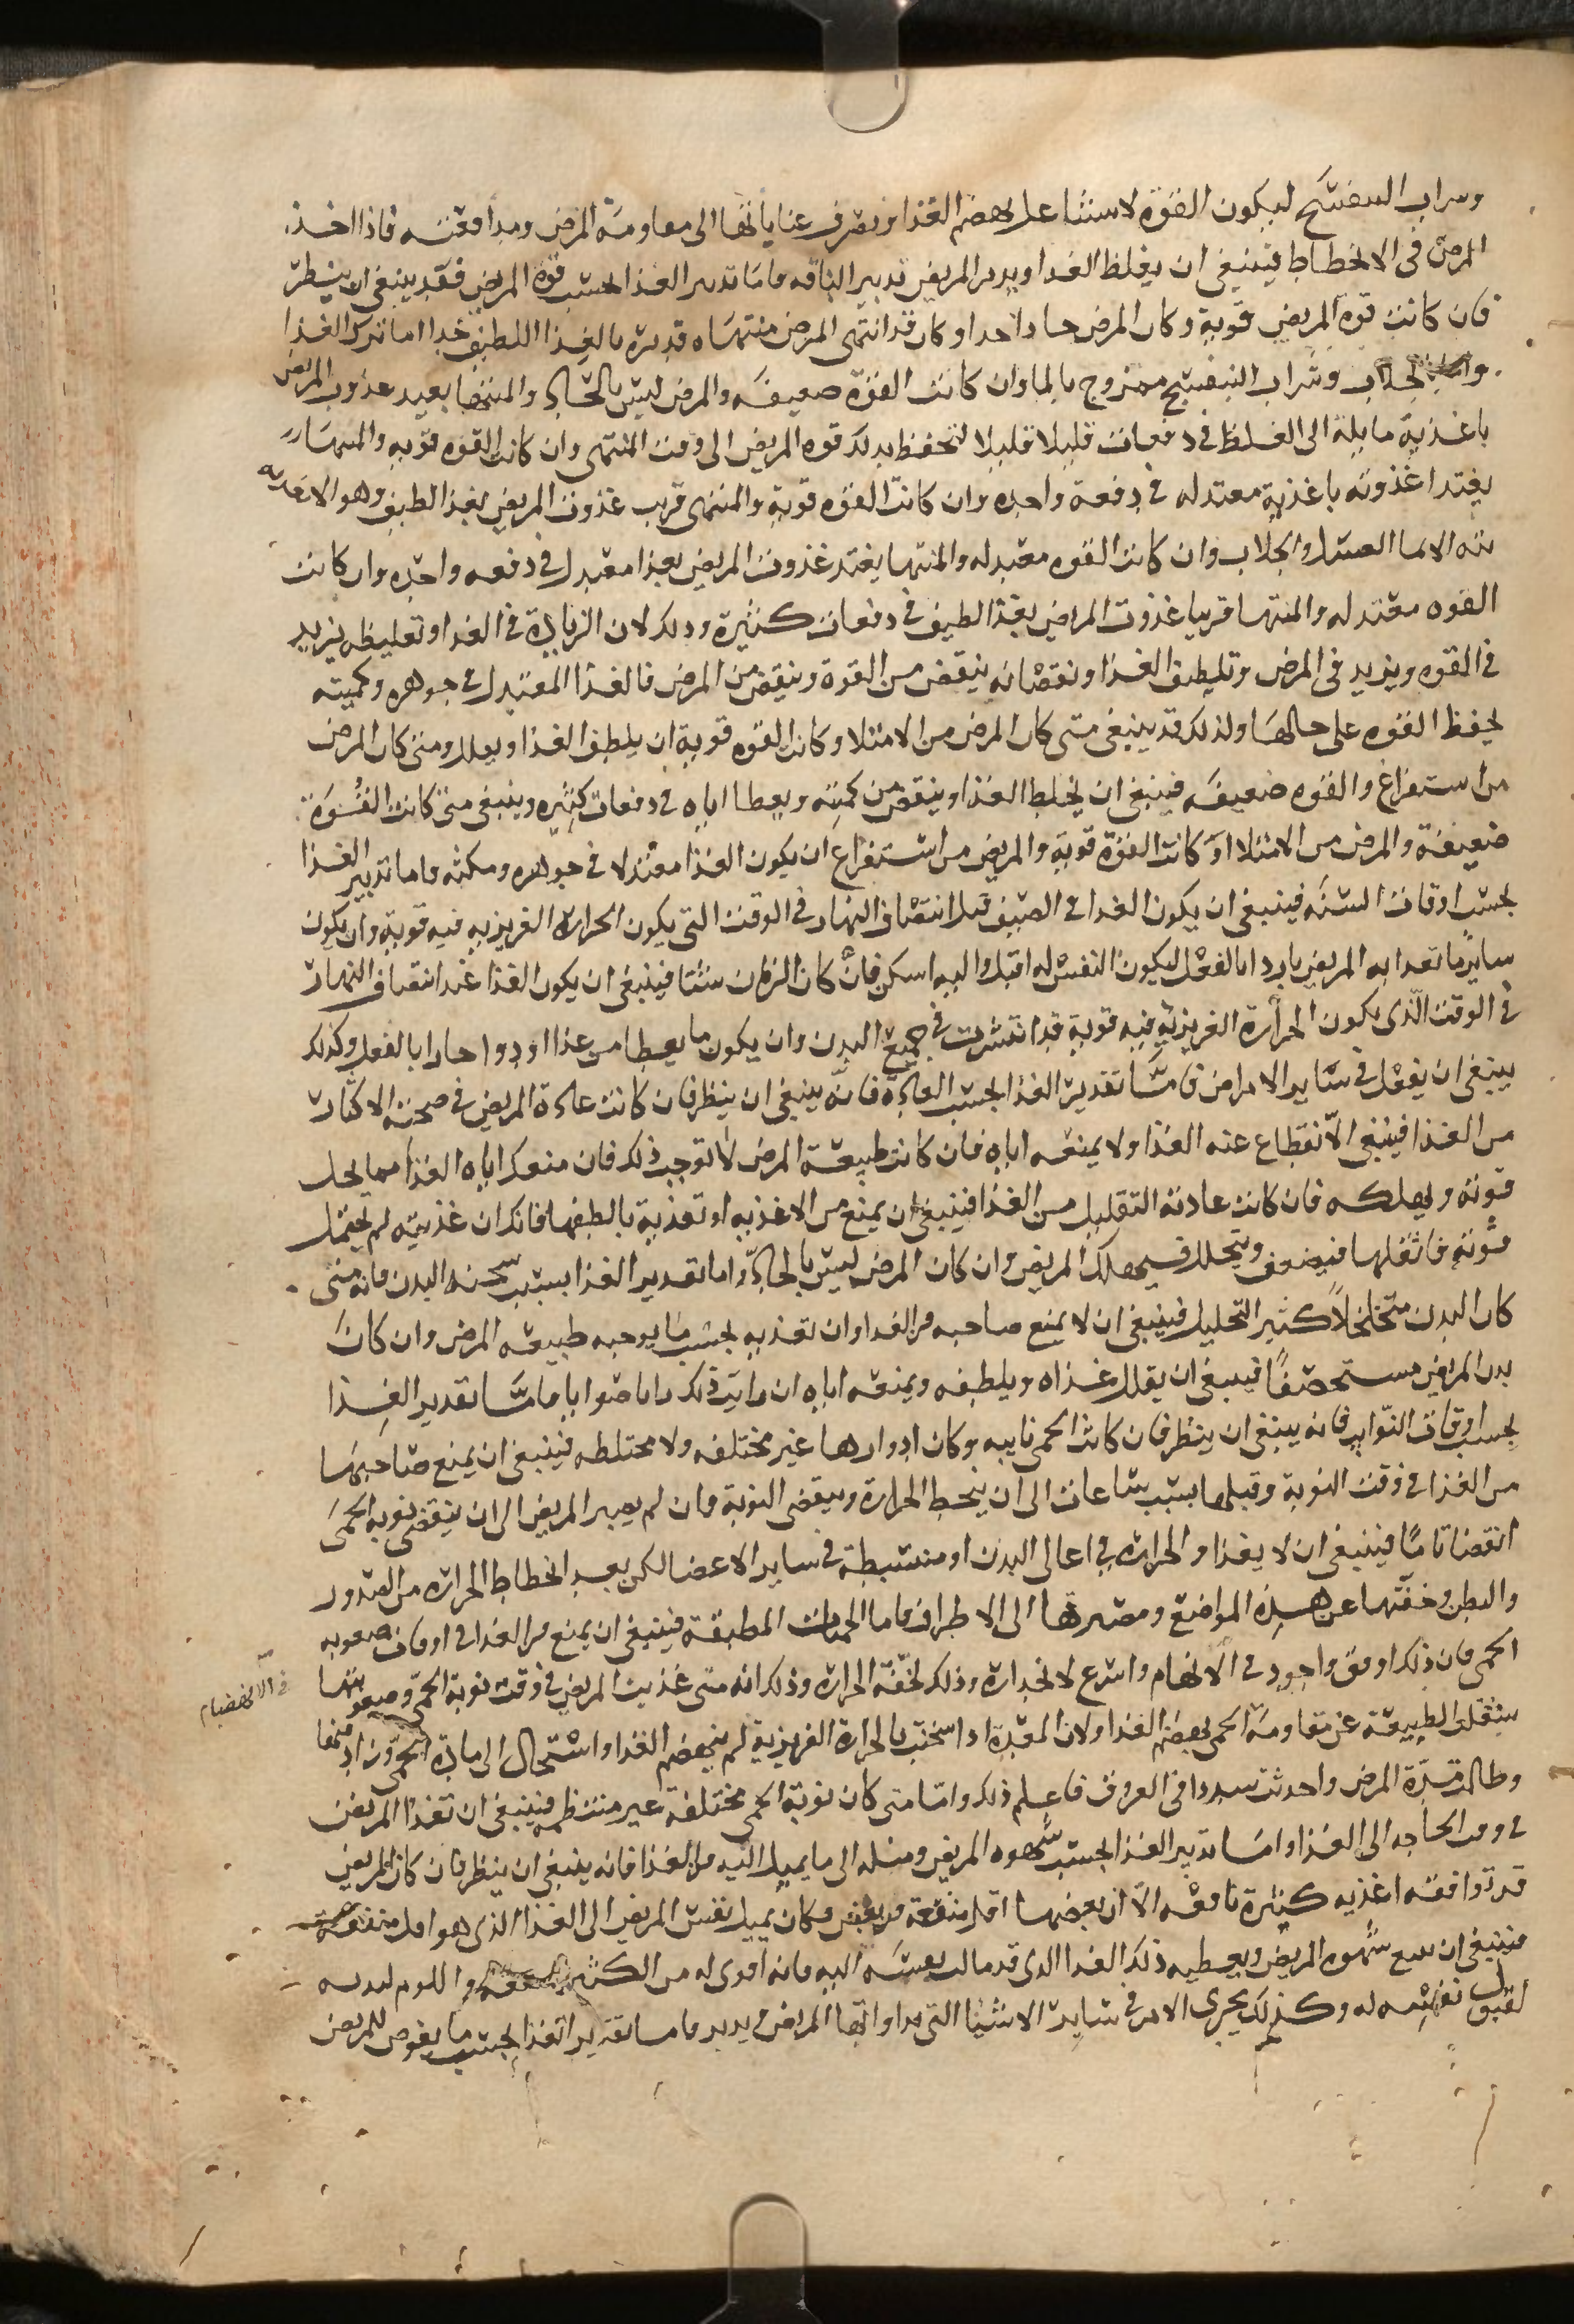 وسراب البنفسج ليكون القوة لاستثا على بهضم الغذا وتصرف عناياتها الى مقاومة المرض ومدافعته فاذا اخذ
المرض فى الانحطاط فينبغى ان يغلظ الغدا ويدبر المريض تدبير الناقه فاما تدبير الغذا بحسب قوة المريض فقد ينبغى ان ينظر
فان كانت قوة المريض قوية وكان المرض حادا حدا وكان قد انتهى المرض منتهاه فدبره بالغذا اللطيف جدا اما ترك الغذا
والجلاب وشراب البنفسج ممزوج بالما وان كانت القوة ضعيفه والمرض ليس بالحاد والمنتها بعيد غذوت المريض
باغذية مايلة الى الغلظ فى دفعات قليلا قليلا لتحفظ بذلك قوه المريض الى وقت المنتهى وان كانت القوه قوية والمنتها
بعيد غذوته باغذية معتدله فى دفعة واحده وان كانت القوه قوية والمنتهى قريب غذوت المريض بغذا لطيف وهو الاغذيه
الما العسل والجلاب وان كانت القوه معتدله والمنتها بعيد غذوت المريض بغذا معتدل فى دفعه واحده وان كانت
القوه معتدله والمنتها قريبا غذوت المريض بغذا لطيف فى دفعات كثيرة وذلك لان الزيادة فى الغدا وتغليظه يزيد
فى القوه ويزيد فى المرض وتلطيف الغذا ونقصانه ينقص من القوة وينقص من المرض فالغذا المعتدل فى جوهره وكميته
يحفظ القوه على حالها ولذلك قد ينبغى متى كان المرض من الامتلا وكانت القوه قوية ان يلطف الغذا ويقلل ومتى كان المرض
من استفراغ والقوه ضعيفه فينبغى ان يغلظ الغذا وينقص من كميته ويعطا اياه فى دفعات كثيره وينبغى متى كانت القوة
ضعيفة والمرض من الامتلا او كانت القوة قوية والمريض من استفراغ ان يكون الغذا معتدلا فى جوهره ومكثه واما تدبير الغذا
بحسب اوقات السنه فينبغى ان يكون الغدا فى الصيف قبل انتصاف النهار فى الوقت التى يكون الحرارة الغريزيه فيه قوية وان يكون
ساير ما تغدا به المريض باردا بالفعل ليكون النفس له اقبل واليه اسكن فان كان الزمان شتا فينبغى ان يكون الغذا عند انتصاف النهار
فى الوقت الذى يكون الحرارة الغريزية فيه قوية قد انتشرت فى جميع البدن وان يكون ما يعطا من غذا او دوا حارا بالفعل وكذلك
ينبغى ان يفعل فى ساير الامراض فاما تقدير الغذا بحسب العادة فانه ينبغى ان ينظر فان كانت عادة المريض فى صحته الاكثار
من الغذا فينبغى الا نقطاع عنه الغذا ولا يمنعه اياه فان كانت طبيعة المرض لا توجب ذلك فان منعك اياه الغذا مما يحل
قوته ويهلكه فان كانت عادته التقليل من الغذا فينبغى ان يمنع من الاغذيه او تغذية بالطفها فانك ان غذيته لم يحتمل
قوته فاثقلها فيضعف ويتحلل فيهلك المريض وان كان المرض ليس بالحاد واما تقدير الغذا بسبب سحنه البدن فانه متى
كان البدن متخلخلا كثير التحليل فينبغى ان لا يمنع صاحبه من الغدا وان تغذيه بحسب ما يوجبه طبيعه المرض وان كان
بدن المريض مستحصفا فينبغى ان يقلل غذاه ويلطفه ويمنعه اياه ان رايت ذلك راياصوابا فاما تقدير الغذا
بحسب اوقات النوايب فانه ينبغى ان ينظر فان كانت الحمى نايبه وكان ادوارها غير مختلفه ولا مختلطه فينبغى ان يمنع صاحبها
من الغذا فى وقت النوبة وقبلها بست ساعات الى ان ينحط الحرارة وينقضى النوبة فان لم يصبر المريض الى ان ينقضى نوبه الحمى
انقضا تاما فينبغى ان لا يغذا والحراره فى اعالى البدن او منبسطة فى ساير الاعضا لكن بعد انحطاط الحراره من الصدور
والبطن وخفتها عن هذه المواضع ومصيرها الى الاطراف فاما الحميات المطبقة فينبغى ان يمنع من الغذا فى اوقات صعوبه
الحمى فان ذلك اوفق واجود فى الانهام واسرع لانحداره وذلك لخفة الحراره وذلك انه متى غذيت المريض فى وقت نوبة الحمى وصعوبتها
فى الانهضام
يثقل الطبيعة عن مقاومة الحمى بهضم الغذا ولان المعدة اذا سخنت بالحرارة الغريزية لم ينهضم الغذا واستحال الى مادة الحمى وزاد فيها
وطالت مدة المرض واحدثت سددا فى العروق فاعلم ذلك واما متى كان نوبة الحمى مختلفة غير منتظمه فينبغى ان تغذا المريض
فى وقت الحاجه الى الغذا واما تدبير الغذا بحسب شهوه المريض وميله الى ما يميل اليه من الغذا فانه ينبغى ان ينظر فان كان المريض
قد توافقه اغذيه كثيرة نافعه الا ان بعضها اقل منفعة من بعض وكان يميل نفس المريض الى الغذا الذى هو اقل منفعه
فينبغى ان يتبع شهوه المريض ويعطيه ذلك الغدا الذى قد مالت نفسه اليه فانه اقوى له من الكثير المنفعه
لقبول نفسه له وكذلك يجرى الامر فى ساير الاشيا التى يداوابها المريض ويدبر فاما تقدير الغذا بحسب ما يعرض للمريض